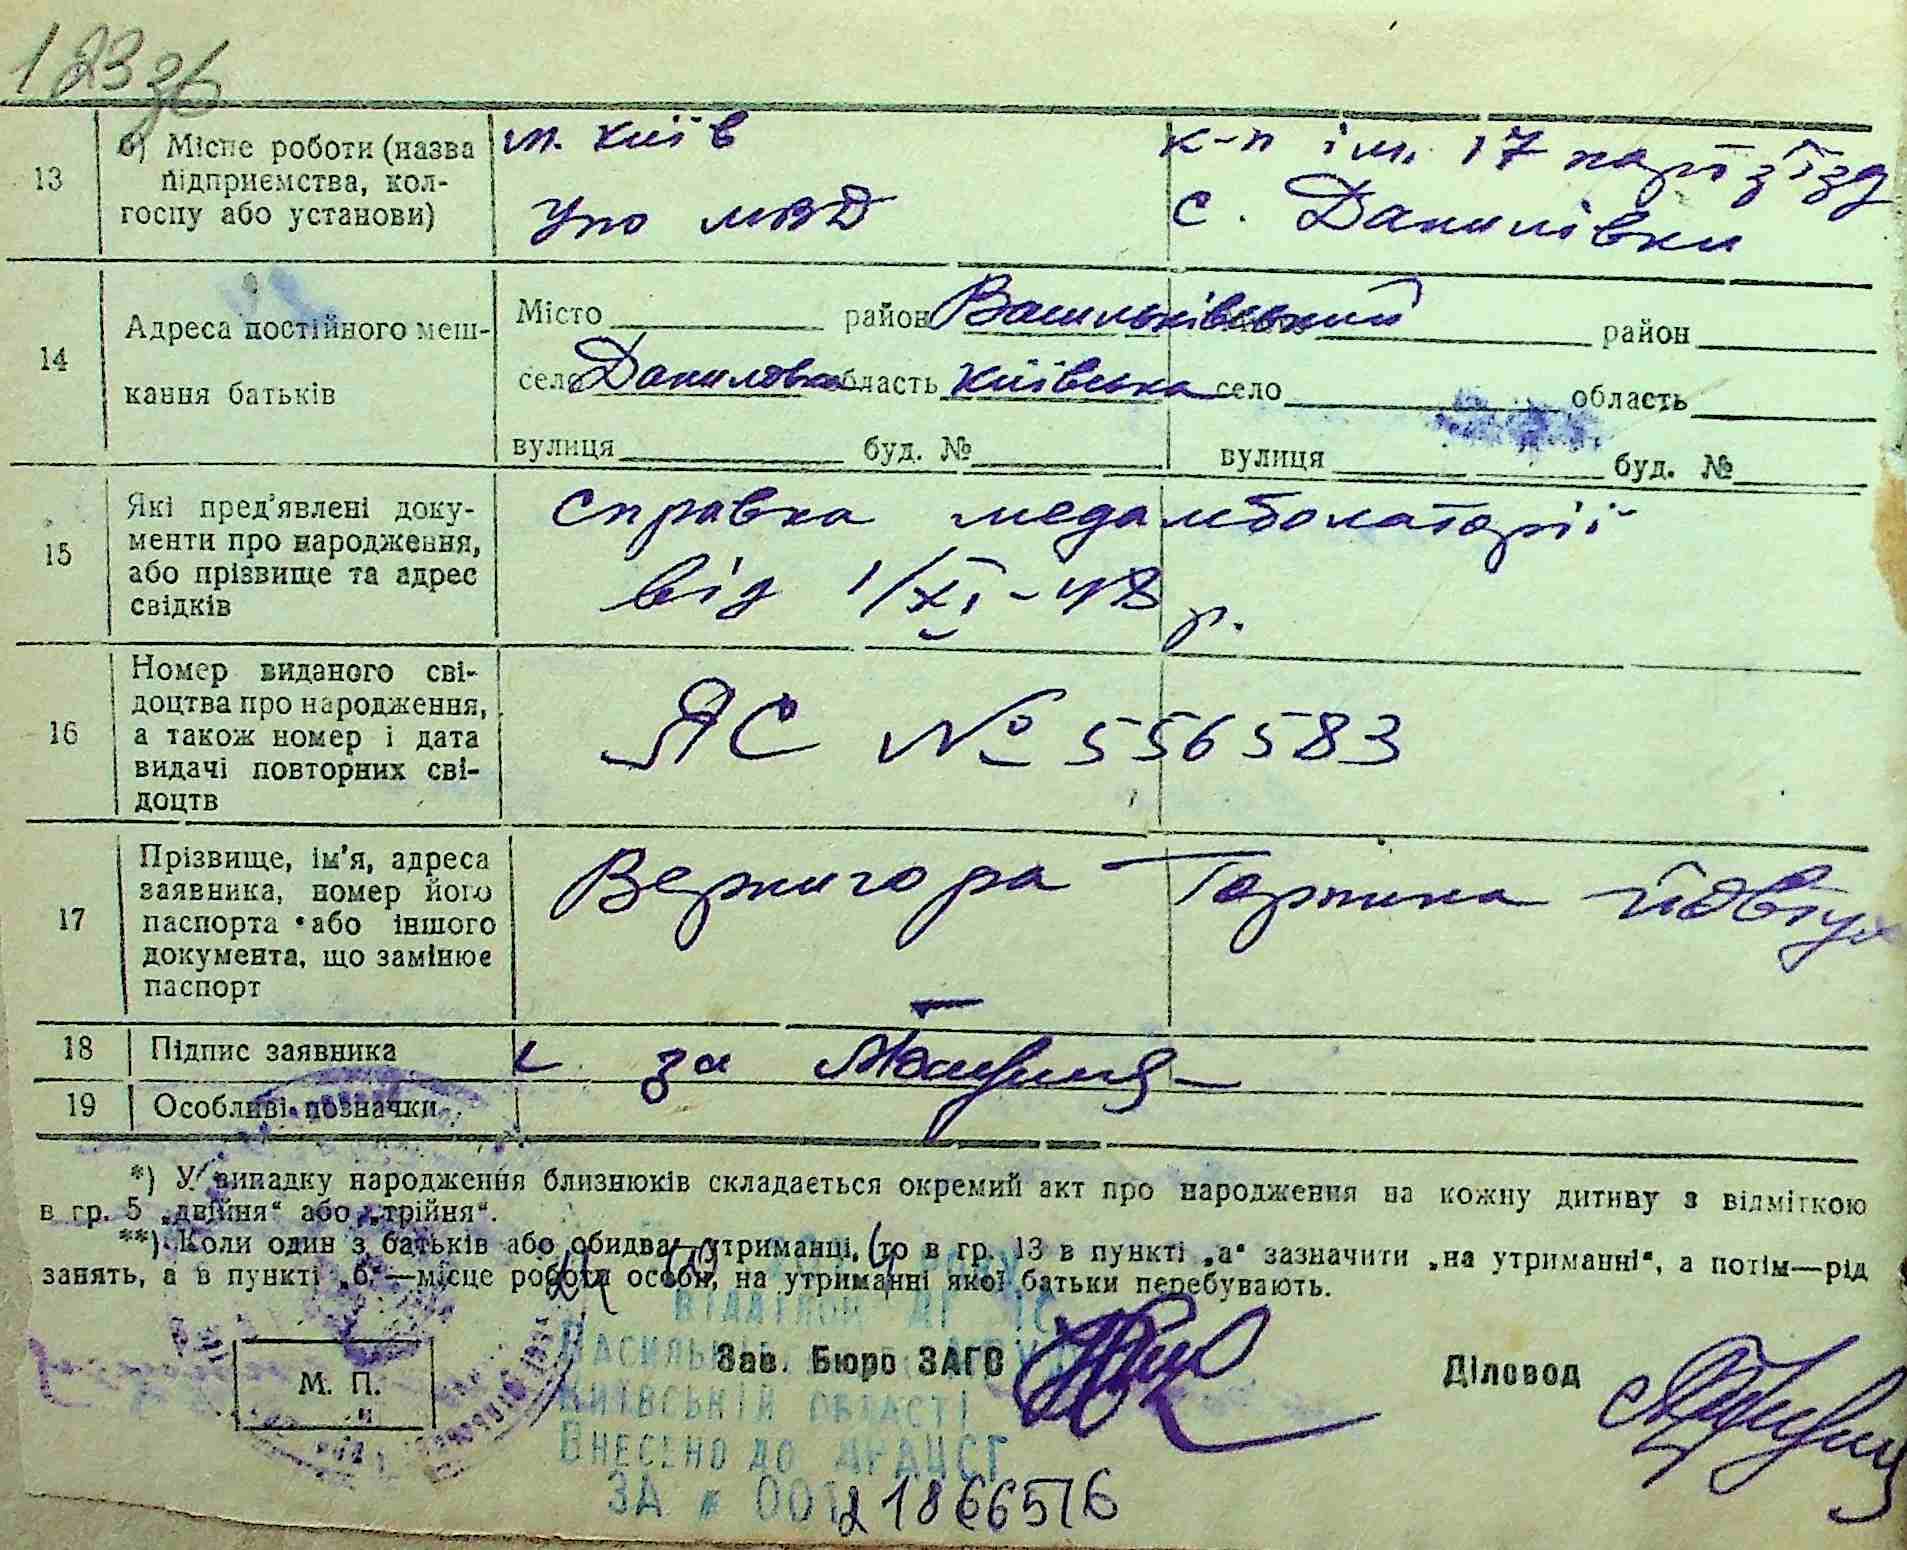 123 зв
13
б) Місце роботи (назва
підприємства, кол-
госпу або установи)
м. Київ
Упо МВД
к-п ім. 17 парт з'їзд
с. Данилівки
14
Адреса постійного меш-
кання батьків
Місто район Васильківський район
село Даниловка область Київська село область
вулиця буд. № вулиця буд. №
15
Які пред'явлені доку-
менти про народження,
або прізвище та адрес
свідків
справка
від 1/XI-48 р.
16
Номер виданого сві-
доцтва про народження,
а також номер і дата
видачі повторних сві-
доцтв
ЯС № 556583
17
Прізвище, ім'я, адреса
заявника, номер його
паспорта або іншого
документа, що замінює
паспорт
Вернигора Горпина Йовтух
18 Підпис заявника за
19 Особливі позначки
*) У випадку народження близнюків складається окремий акт про народження на кожну дитину з відміткою
в гр. 5 „двійня“ або „трійня“.
**) Коли один з батьків або обидва—утриманці, то в гр. 13 в пункті „а“ зазначити „на утриманні“, а потім—рід
занять, а в пункті „б“—місце роботи особи, на утриманні якої батьки перебувають.
Зав. Бюро ЗАГС
Діловод
М. П.
Київській області
Внесено до ДРАЦСГ
за № 00121866576